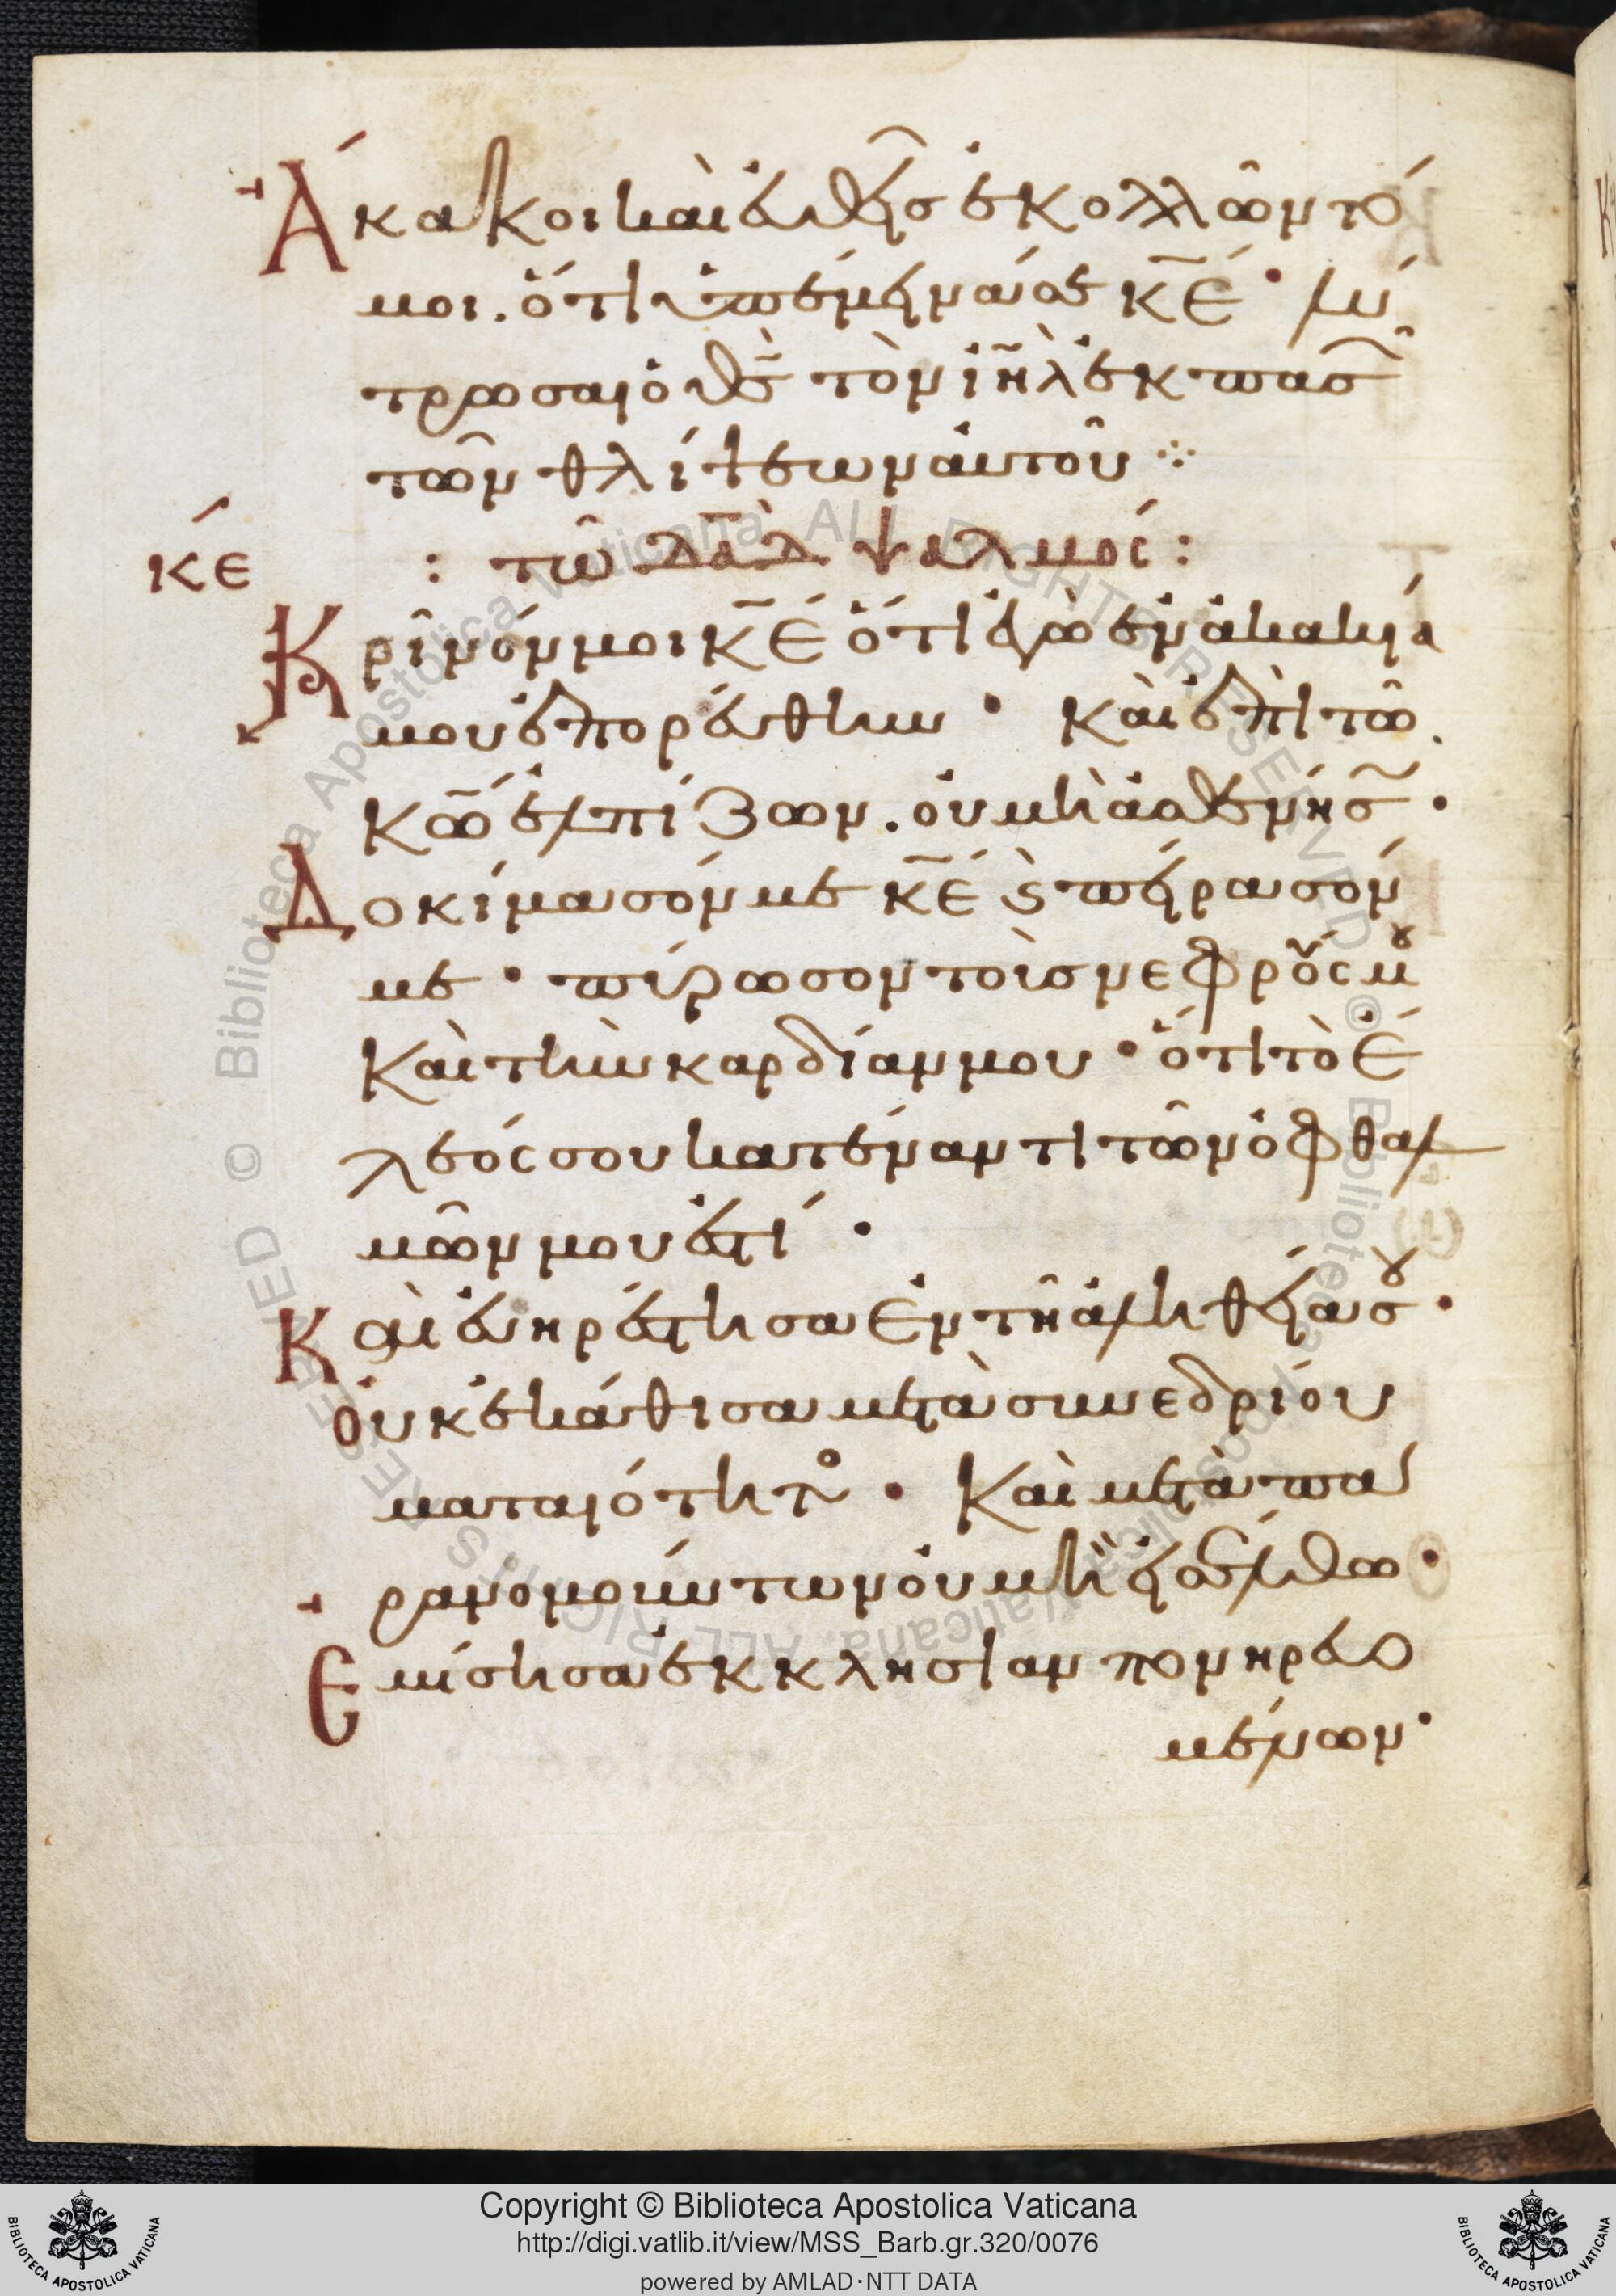 Ἄκακοι καὶ εὐθεῖς ἐκολλῶντό
μοι. ὅτι ὑπέμεινά σε κ̅ε̅· λύ
τρωσαι ὁ θ̅ς̅ τὸν ἰη̅λ̅ ἐκ πασῶν
τῶν θλίψεων αὐτοῦ ⁘
κε : τῶ δα̅δ̅ ψαλμός :
Κρῖνόν μοι κ̅ε̅ ὅτι ἐγὼ ἐν ἀκακία
μου ἐπορεύθην· καὶ ἐπὶ τῶ
κ̅ω̅ ἐλπίζων. οὐ μὴ ἀσθενήσω·
Δοκίμασόν με κ̅ε̅ ϗ πείρασόν
με· πύρωσον τοὺς νεφρούς μου
καὶ τὴν καρδίαν μου· ὅτι τὸ ἔ
λεός σου κατέναντι τῶν ὀφθαλ
μῶν μου ἐστί·
Καὶ εὐηρέστησα ἐν τῆ ἀληθεία σου·
οὐκ ἐκάθισα μετὰ συνεδρίου
ματαιότητος· καὶ μετὰ πα
ρανομούντων οὐ μὴ εἰσέλθω·
Ἐμίσησα ἐκκλησίαν πονηρευο
μένων·
Copyright © Biblioteca Apostolica Vaticana
http://digi.vatlib.it/view/MSS_Barb.gr.320/0076
powered by AMLAD·NTT DATA